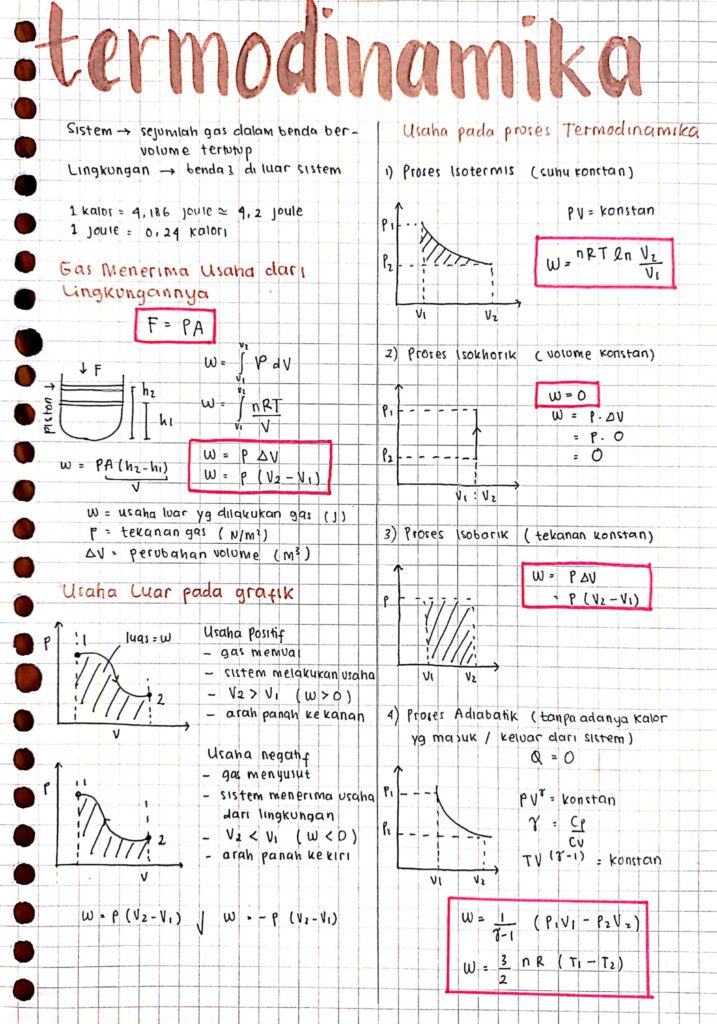 termodinamika
Sistem → sejumlah gas dalam benda ber-
volume tertutup
Lingkungan → benda2 di luar sistem
1 kalor = 4,186 joule ≃ 4,2 joule
1 joule = 0,24 kalori
Gas Menerima Usaha dari
Lingkungannya
F = PA
↓ F
piston →
h2
h1
W = ∫ P dV
V2
V1
W = ∫ nRT/V
V2
V1
W = PA (h2-h1)
V
W = P ΔV
W = P (V2-V1)
W = usaha luar yg dilakukan gas (J)
P = tekanan gas (N/m²)
ΔV = perubahan volume (m³)
Usaha Luar pada grafik
P
1
luas = W
2
V
Usaha Positif
- gas memuai
- sistem melakukan usaha
- V2 > V1 (W>0)
- arah panah ke kanan
P
1
2
V
Usaha negatif
- gas menyusut
- sistem menerima usaha
dari lingkungan
- V2 < V1 (W<0)
- arah panah ke kiri
W = P (V2-V1)
W = -P (V2-V1)
Usaha pada proses Termodinamika
1) Proses Isotermis (suhu konstan)
P1
P2
V1
V2
PV = konstan
W = nRT ln V2/V1
2) Proses Isokhorik (volume konstan)
P1
P2
V1 : V2
W = 0
W = P. ΔV
= P. 0
= 0
3) Proses Isobarik (tekanan konstan)
P
V1
V2
W = P ΔV
= P (V2-V1)
4) Proses Adiabatik (tanpa adanya kalor
yg masuk / keluar dari sistem)
Q = 0
P1
V1
V2
PV^γ = konstan
γ = Cp/Cv
TV^(γ-1) = konstan
W = 1/γ-1 (P1V1 - P2V2)
W = 3/2 nR (T1-T2)